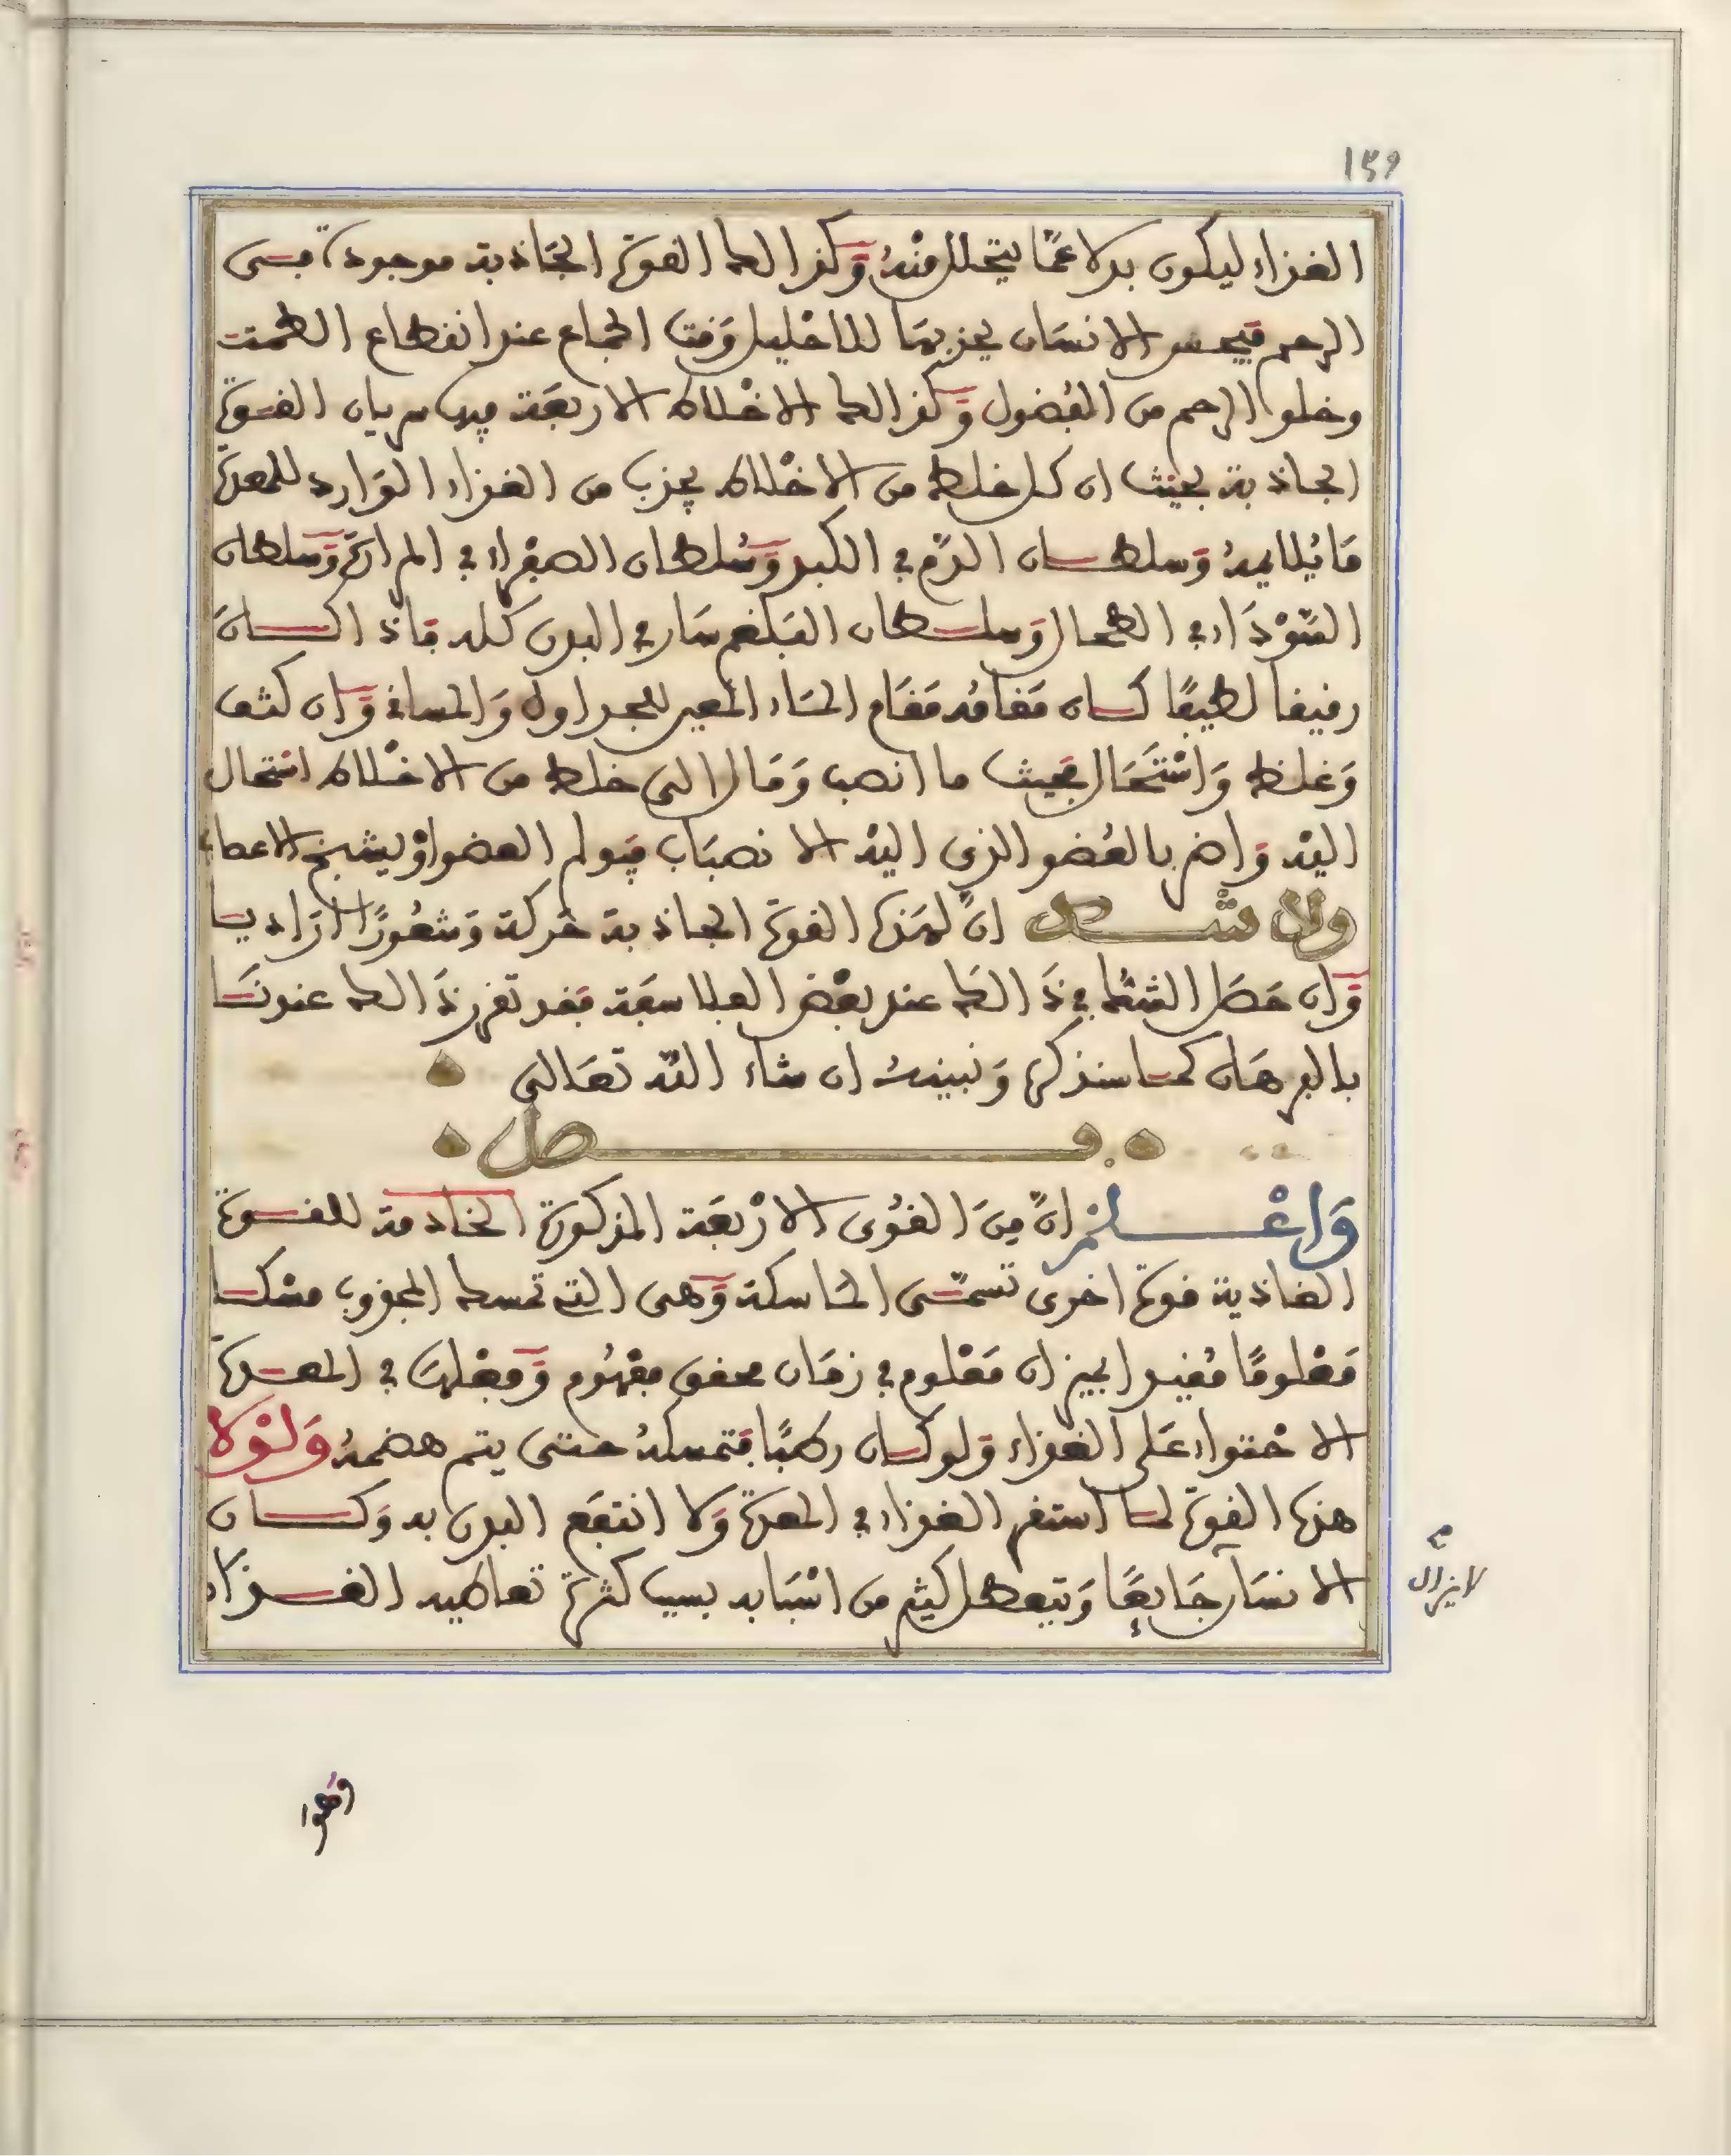 ١٤٩
الغذاء ليكون بدلا عمّا يتحلل منهُ وَكذالك القوة الجَاذبة موجودة في
الرحم فيحس الانسَان يجذبهَا للاحْليل وَقت الجماع عند انقطاع الطمث
وخلو الرحم من الفُضول وَكذالك الاخْلاط الاربعَة فيها سريان القوة
الجاذبة بحيْث ان كل خلط من الاخْلاط يجذب من الغذاء الوَارد للمعدة
مَا يُلايمهُ وَسلطان الدّم في الكبد وَسُلطان الصفرَاء في المرارة وَسلطان
السّوْدَاء في الطحال وَسلطان البَلغم سَار في البدن كله فاذا كان
رقيقا لطيفًا كان مَقامُه مَقَام المَاء المعين للجداول وَالمساقي وَان كثف
وَغلظ وَاسْتحَال بحيث ما انصب وَمَال الى خلط من الاخْلاط استحال
اليْه وَاضر بالعُضو الذي اليْه الانصبَاب فيولم العضو اوْ يشنج الاعضاء
ولا شك انّ لهَذه القوة الجاذبة حَركة وَشعُورًا ارَاديا
وَان حَصَل الشكُ في ذَالكَ عند بعْض الفلاسفَة فقد تقرر ذَالك عندنَا
بالبرهَان كما سنذكره وَنبينهُ ان شاء اللّه تعَالى
فصل
وَاعْلمْ انّ مِنَ القُوى الارْبعَة المذكورة الخادمة للقوة
الغاذية قوة اخرى تسمّى الماسكة وَهى التي تمسك المجذوب مسْكا
مَعْلومًا مُقيدا بميزان مَعْلوم في زمَان محقق مفْهُوم وَفعْلهَا في المعدة
الاحْتواء عَلى الغذاء وَلو كان رطبًا فتمسكهُ حتى يتم هضمهُ وَلَوْلا
هذه القوة لما استقر الغذاء في المعدة وَلا انتفَع البدن به وَكان
الانسَان جَايعًا وَتتعطل كثير من اسْبَابه بسبب كثرة تعاطيه الغذاء
لايزال
وَهوا